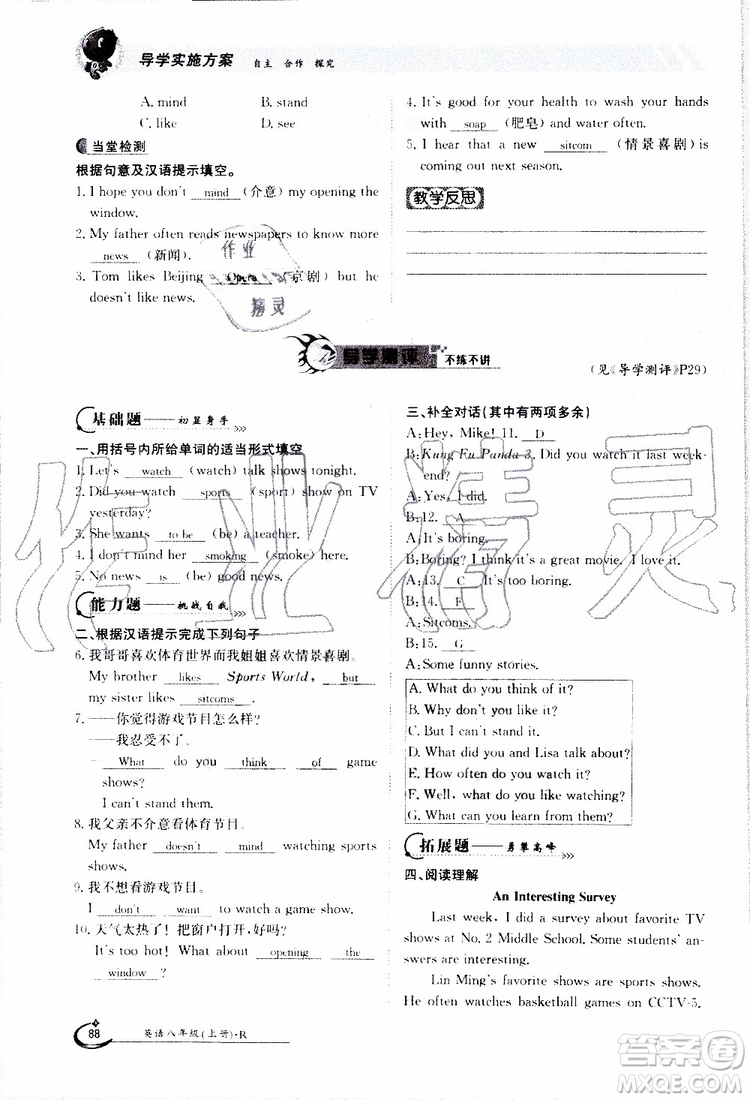 导学实施方案 自主 合作 探究
A. mind B. stand
C. like D. see
当堂检测
根据句意及汉语提示填空。
1. I hope you don't mind (介意) my opening the
window.
2. My father often reads newspapers to know more
news (新闻).
3. Tom likes Beijing Opera (京剧) but he
doesn't like news.
4. It's good for your health to wash your hands
with soap (肥皂) and water often.
5. I hear that a new sitcom (情景喜剧) is
coming out next season.
教学反思
导学测评 不练不讲
(见《导学测评》P29)
基础题——初显身手
一、用括号内所给单词的适当形式填空
1. Let's watch (watch) talk shows tonight.
2. Did you watch sports (sport) show on TV
yesterday?
3. She wants to be (be) a teacher.
4. I don't mind her smoking (smoke) here.
5. No news is (be) good news.
能力题——挑战自我
二、根据汉语提示完成下列句子
6. 我哥哥喜欢体育世界而我姐姐喜欢情景喜剧。
My brother likes Sports World, but
my sister likes sitcoms.
7. ——你觉得游戏节目怎么样?
——我忍受不了。
—What do you think of game
shows?
—I can't stand them.
8. 我父亲不介意看体育节目。
My father doesn't mind watching sports
shows.
9. 我不想看游戏节目。
I don't want to watch a game show.
10. 天气太热了!把窗户打开,好吗?
It's too hot! What about opening the
window?
三、补全对话(其中有两项多余)
A: Hey, Mike! 11. D
B: Kung Fu Panda 3. Did you watch it last week-
end?
A: Yes, I did.
B: 12. A
A: It's boring.
B: Boring? I think it's a great movie. I love it.
A: 13. C It's too boring.
B: 14. F
A: Sitcoms.
B: 15. G
A: Some funny stories.
A. What do you think of it?
B. Why don't you like it?
C. But I can't stand it.
D. What did you and Lisa talk about?
E. How often do you watch it?
F. Well, what do you like watching?
G. What can you learn from them?
拓展题——勇攀高峰
四、阅读理解
An Interesting Survey
Last week, I did a survey about favorite TV
shows at No. 2 Middle School. Some students' an-
swers are interesting.
Lin Ming's favorite shows are sports shows.
He often watches basketball games on CCTV-5.
88 英语八年级(上册)·R
作业精灵
作业精灵
答案圈
MXQE.COM